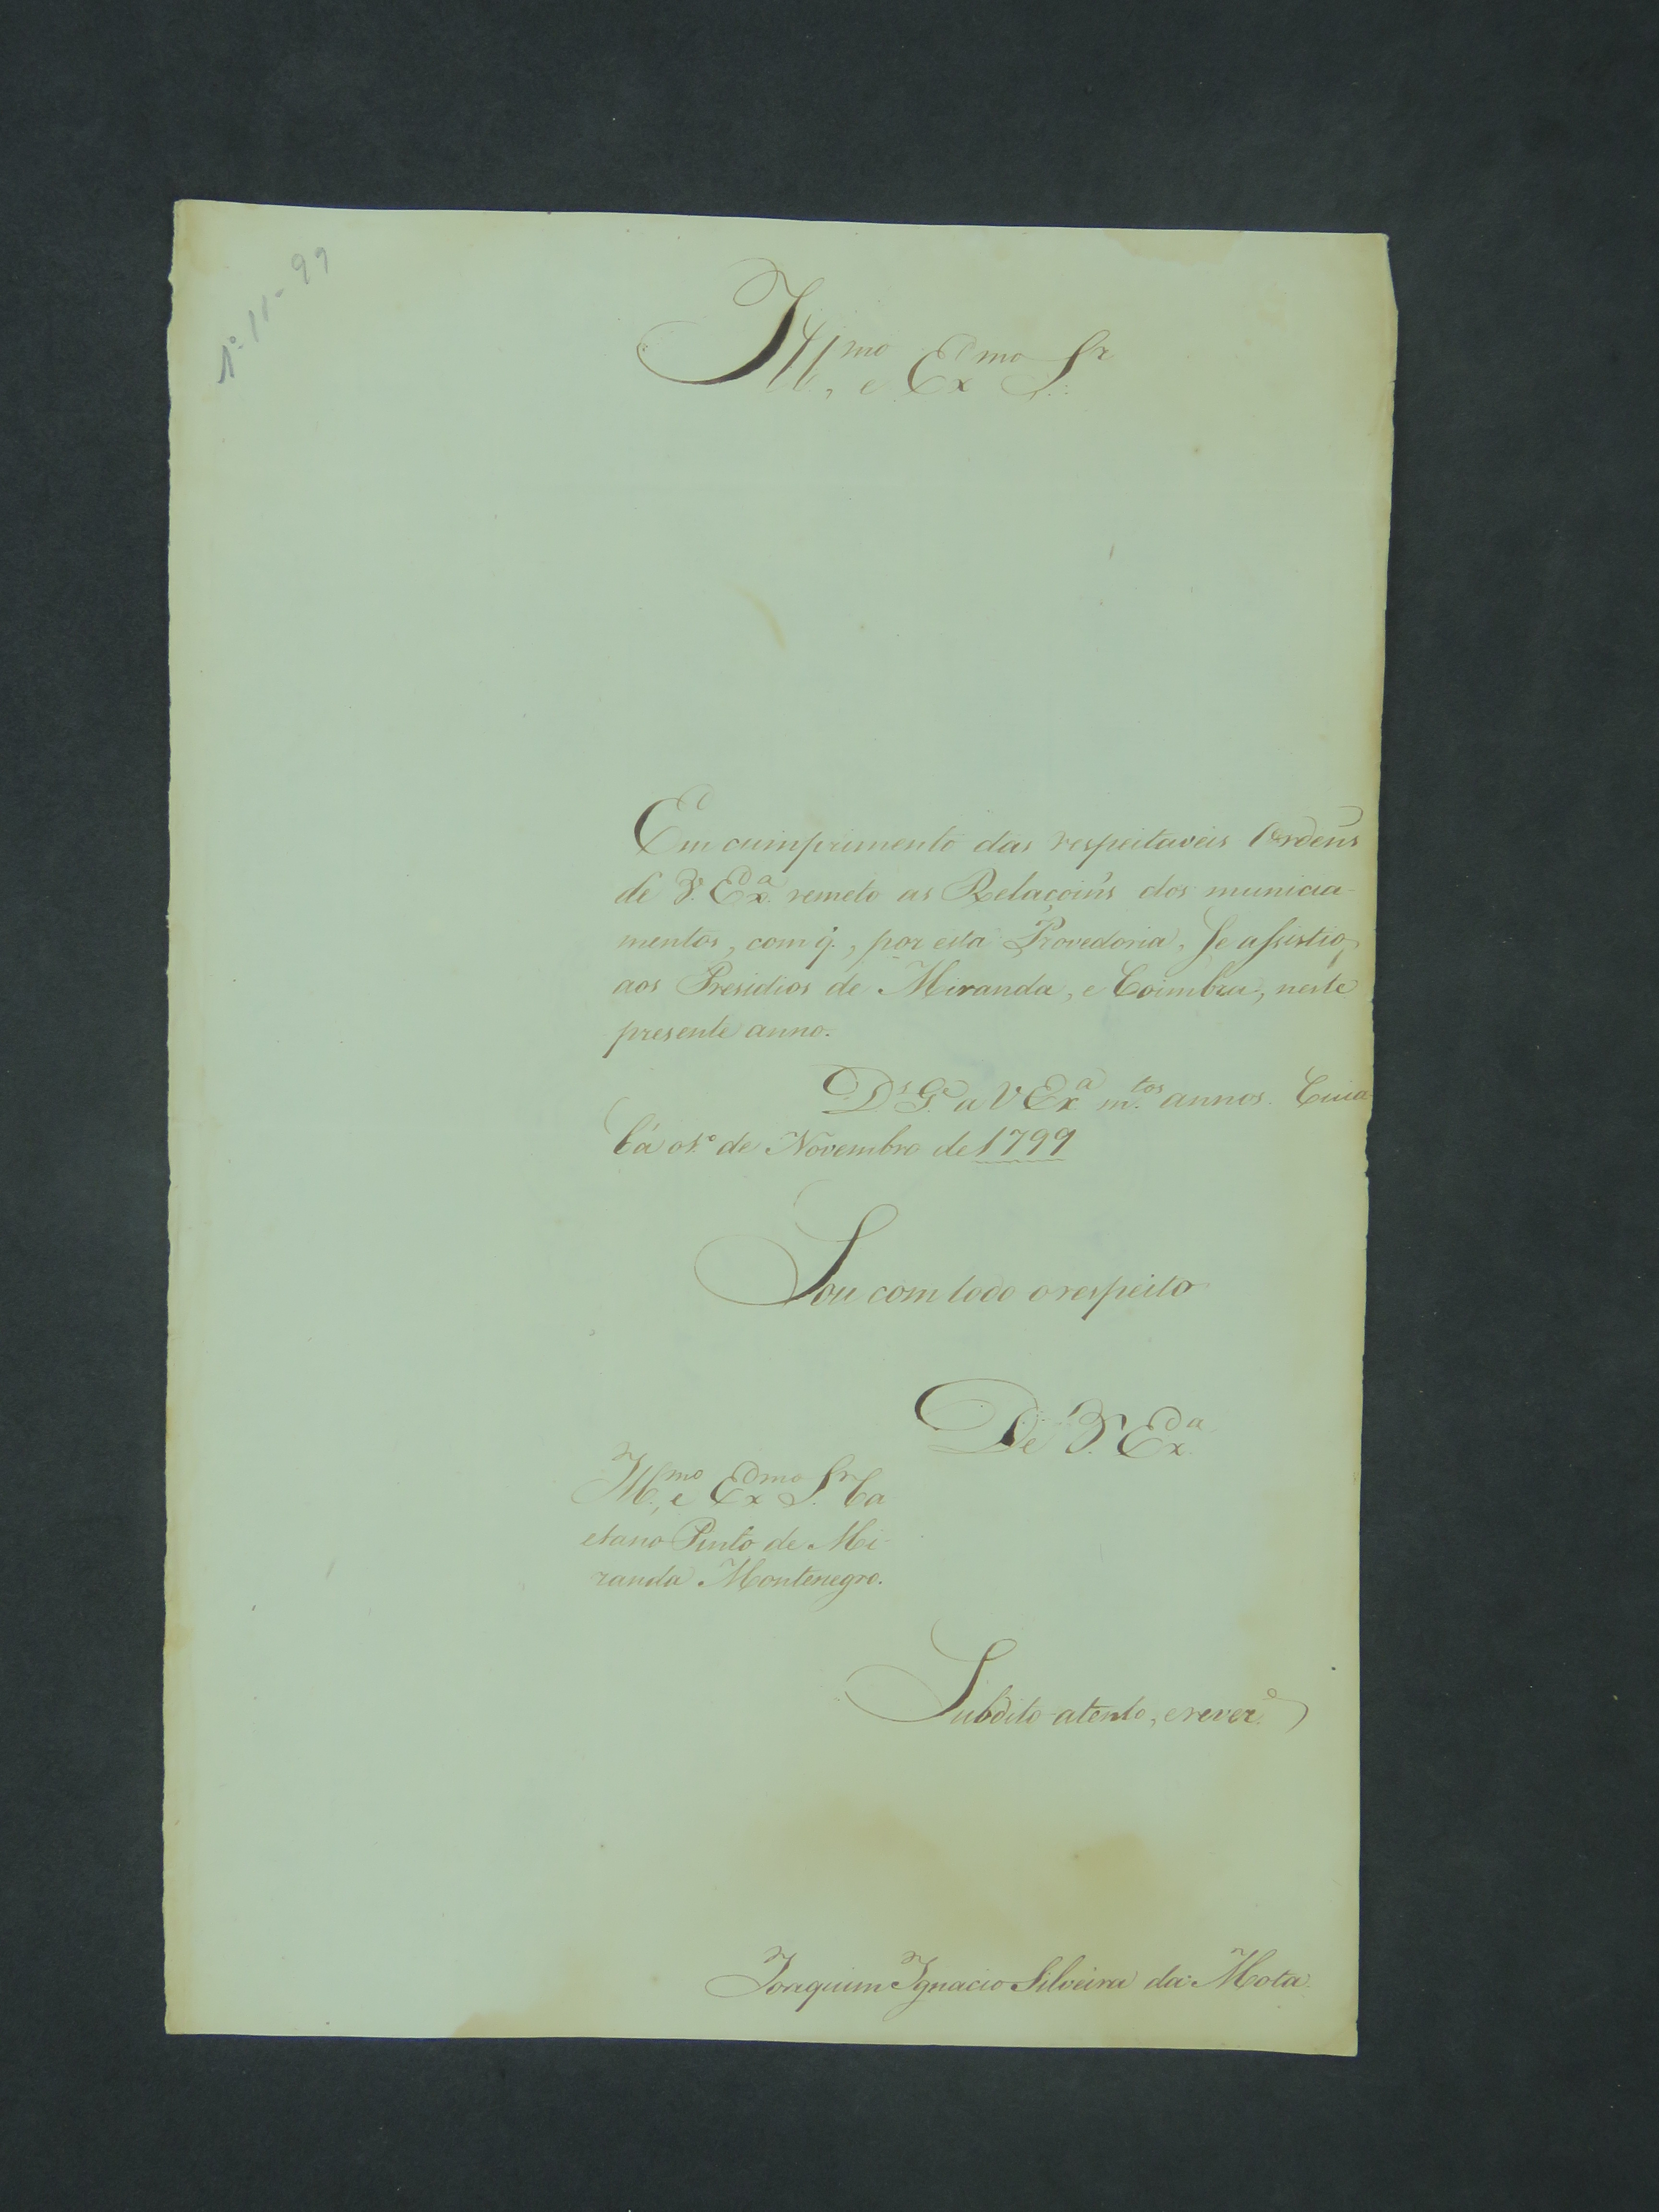 1º-11-99
Ill.mo, e Ex.mo Sr.
Em cumprimento das respeitaveis Ordens
de V. Exa. remeto as Relaçoins dos municia-
mentos, com q., por esta Provedoria, se assistio
aos Presidios de Miranda, e Coimbra, neste
presente anno.
Ds. Ge. a V Exa m.tos annos. Cuia-
bá o 1º de Novembro de 1799
Sou com todo o respeito
De V. Exa.
Ill.mo, e Ex.mo Sr. Ca
etano Pinto de Mi-
randa Montenegro.
Subdito atento, e rever.e
Joaquim Ignacio Silveira da Mota.